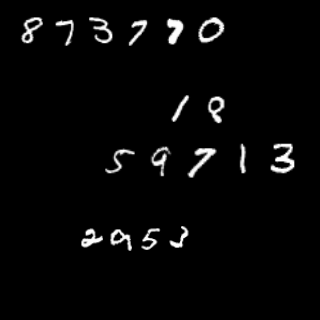 873770
18
59713
2953